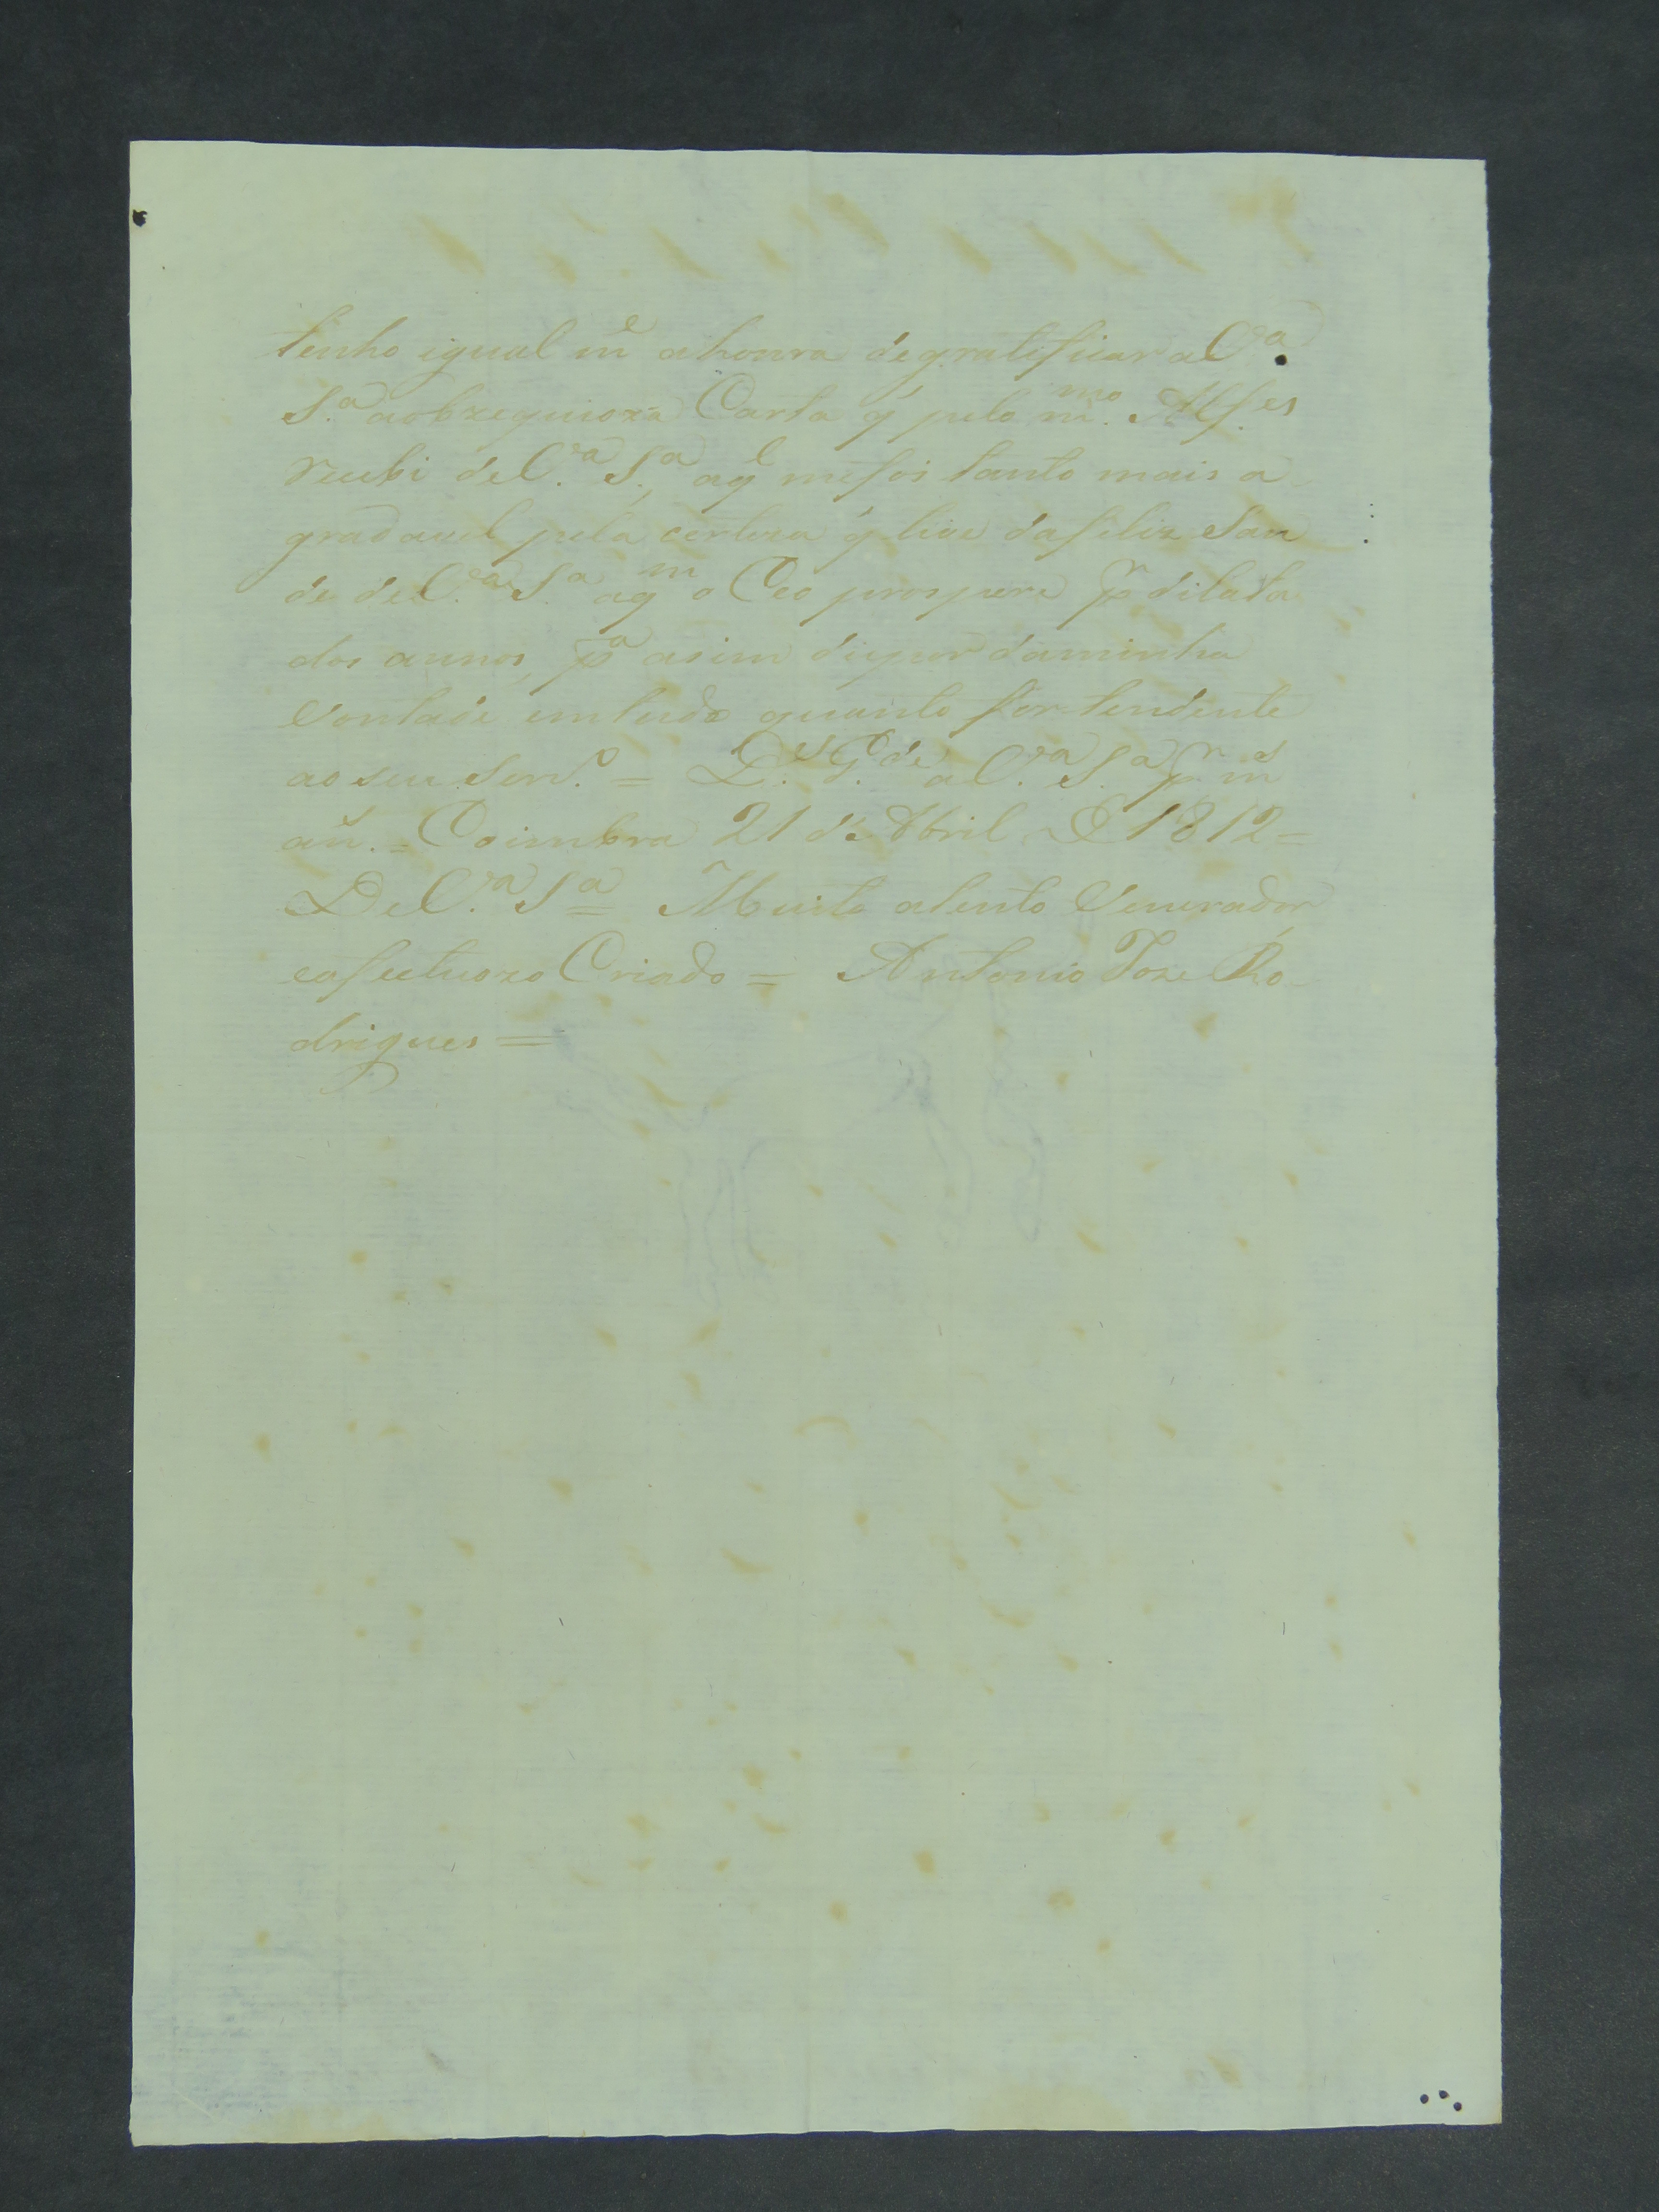 tenho igual m.e a honra de gratificar a V.a
S.a a obzequioza Carta q' pelo m.mo Alf.es
recebi de V.a S.a, a q.l me foi tanto mais a
gradavel pela certeza q' tive da feliz sau
de de V.a S.a a q.m o Ceo prospere p.r dilata
dos annos, p.a asim dispor da minha
vontade em tudo quanto for tendente
ao seu Serv.o = D.s G.de a V.a S.a p.r m.s
an.s = Coimbra 21 de Abril D 1812 =
De V.a S.a = Muito atento Venerador
e afectuozo Criado = Antonio Joze Ro
drigues =